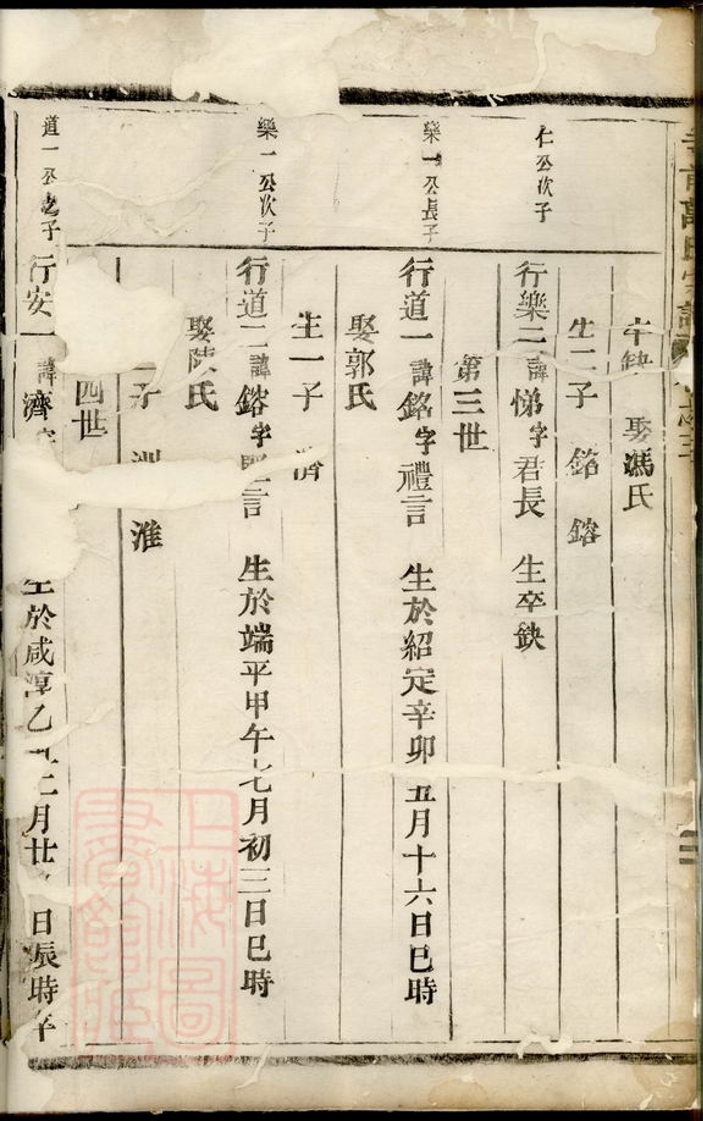 萬氏宗譜
卒缺 娶馮氏
生二子 銘 鎔
仁公次子
行樂二諱悌字君長 生卒缺
第三世
樂一公長子
行道一諱銘字禮言 生於紹定辛卯五月十六日巳時
娶郭氏
生一子 濟
樂一公次子
行道二諱鎔字言 生於端平甲午七月初三日巳時
娶陳氏
子 淮
四世
道一公之子
行安一諱濟字 生於咸淳乙二月廿日辰時卒
上海圖書館藏